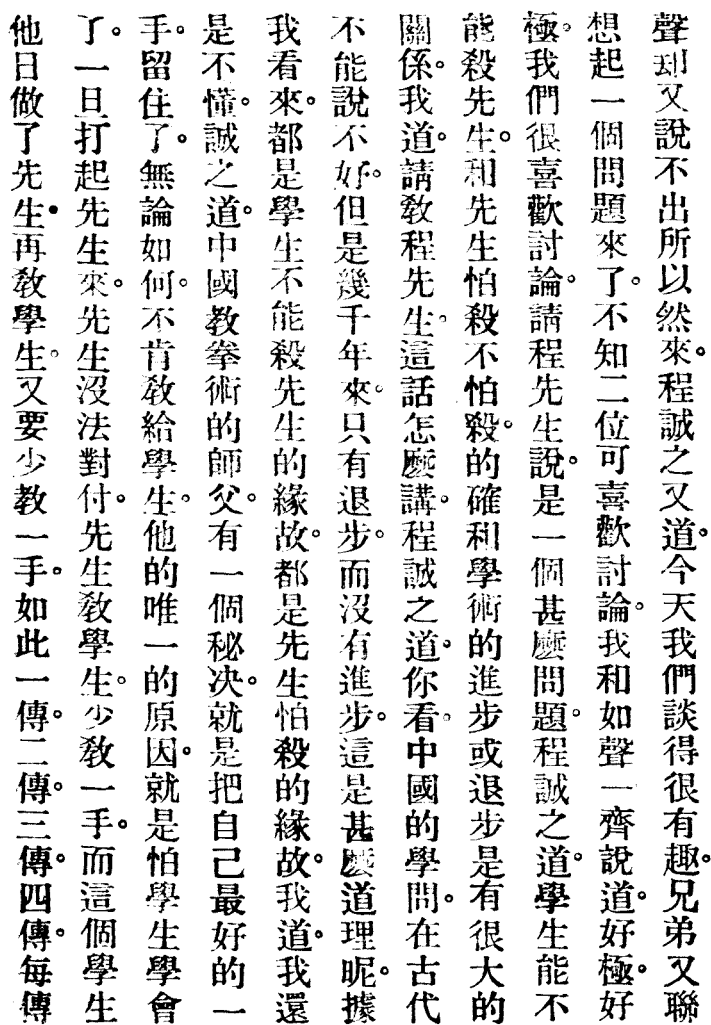 聲却又說不出所以然來。程誠之又道。今天我們談得很有趣。兄弟又聯
想起一個問題來了。不知二位可喜歡討論。我和如聲一齊說道。好極。好
極。我們很喜歡討論。請程先生說。是一個甚麽問題。程誠之道。學生能不
能殺先生。和先生怕殺不怕殺。的確和學術的進步或退步是有很大的
關係。我道。請敎程先生。這話怎麽講。程誠之道。你看。中國的學問。在古代
不能說不好。但是幾千年來。只有退步。而沒有進步。這是甚麽道理呢。據
我看來。都是學生不能殺先生的緣故。都是先生怕殺的緣故。我道。我還
是不懂。誠之道。中國教拳術的師父。有一個秘决。就是把自己最好的一
手。留住了。無論如何。不肯敎給學生。他的唯一的原因。就是怕學生學會
了。一旦打起先生來。先生沒法對付。先生敎學生。少敎一手。而這個學生
他日做了先生。再敎學生。又要少教一手。如此一傳。二傳。三傳。四傳。每傳